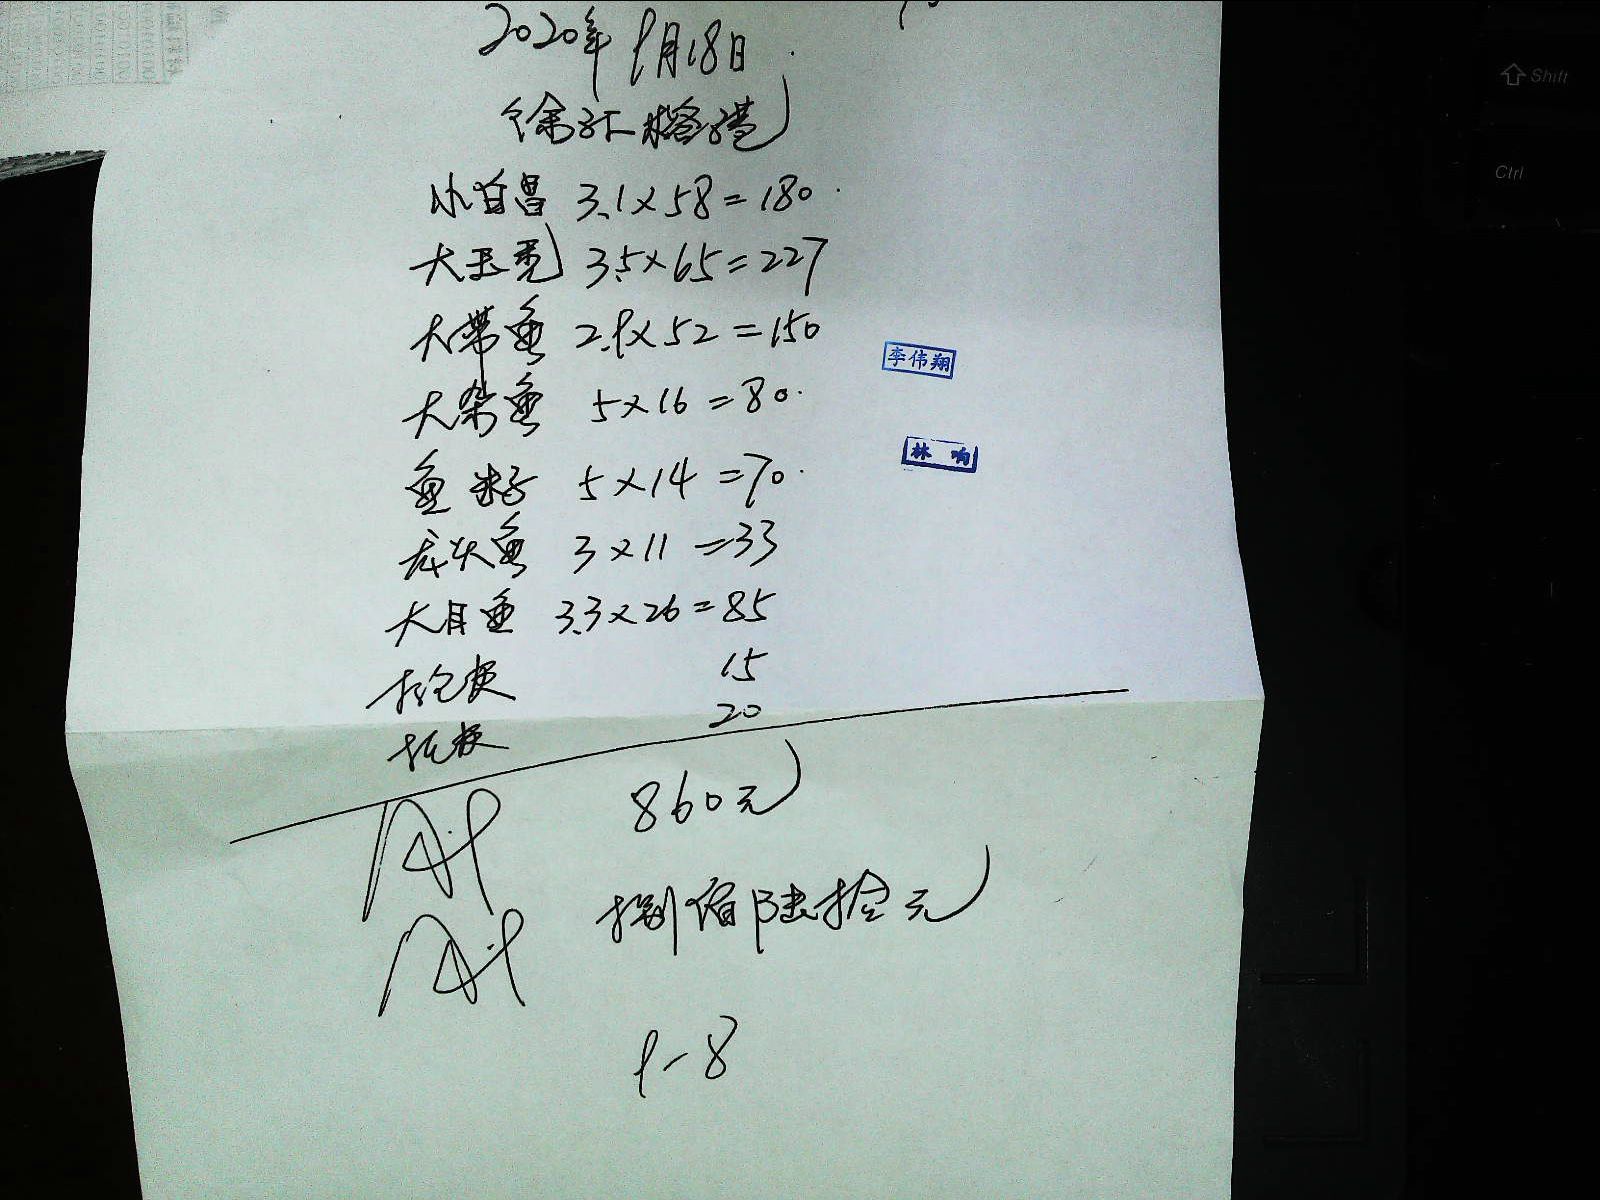 2020年9月18日
徐汇榕港
小白昌 3.1×58=180
大玉秃 3.5×65=227
大带鱼 2.9×52=150
李伟翔
大杂鱼 5×16=80
林响
鱼籽 5×14=70
龙头鱼 3×11=33
大目鱼 3.3×26=85
15
20
860元
捌佰陆拾元
9-8
Shift
Ctrl